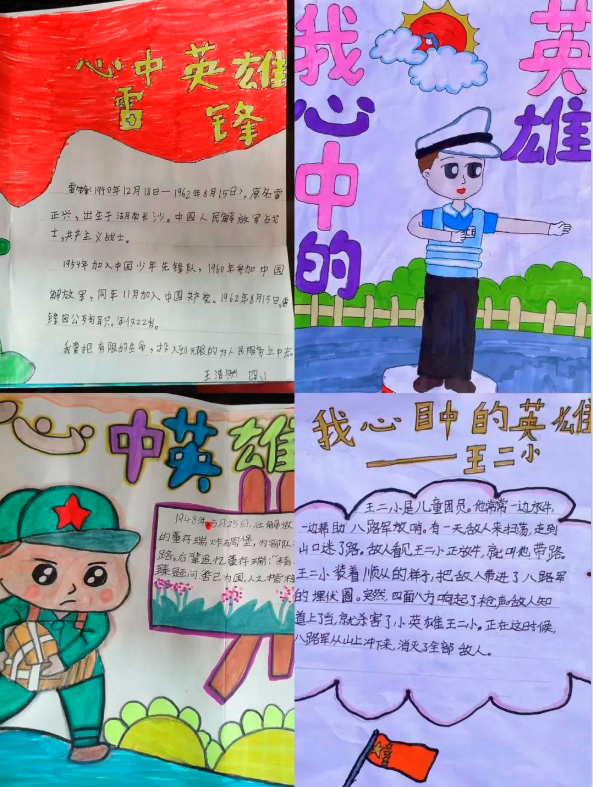 心中英雄
雷锋
雷锋(1940年12月18日—1962年8月15日),原名雷
正兴,出生于湖南长沙。中国人民解放军战
士,共产主义战士。
1954年加入中国少年先锋队,1960年参加中国
解放军,同年11月加入中国共产党。1962年8月15日,雷
锋因公殉职,年仅22岁。
我要把有限的生命,投入到无限的为人民服务之中去
王浩然 四小
我心中的
英雄
心中英雄
1948年5月25日,在解放
的董存瑞炸碉堡,为部队
路。后辈追忆董存瑞:
我心目中的英雄
——王二小
王二小是儿童团员。他常常一边放牛,
一边帮助八路军放哨。有一天敌人来扫荡,走到
山口迷了路。敌人看见王二小正放牛,就叫他带路。
王二小装着顺从的样子,把敌人带进了八路军
的埋伏圈。突然,四面八方响起了枪声,敌人知
道上了当,就杀害了小英雄王二小。正在这时候,
八路军从山上冲下来,消灭了全部敌人。